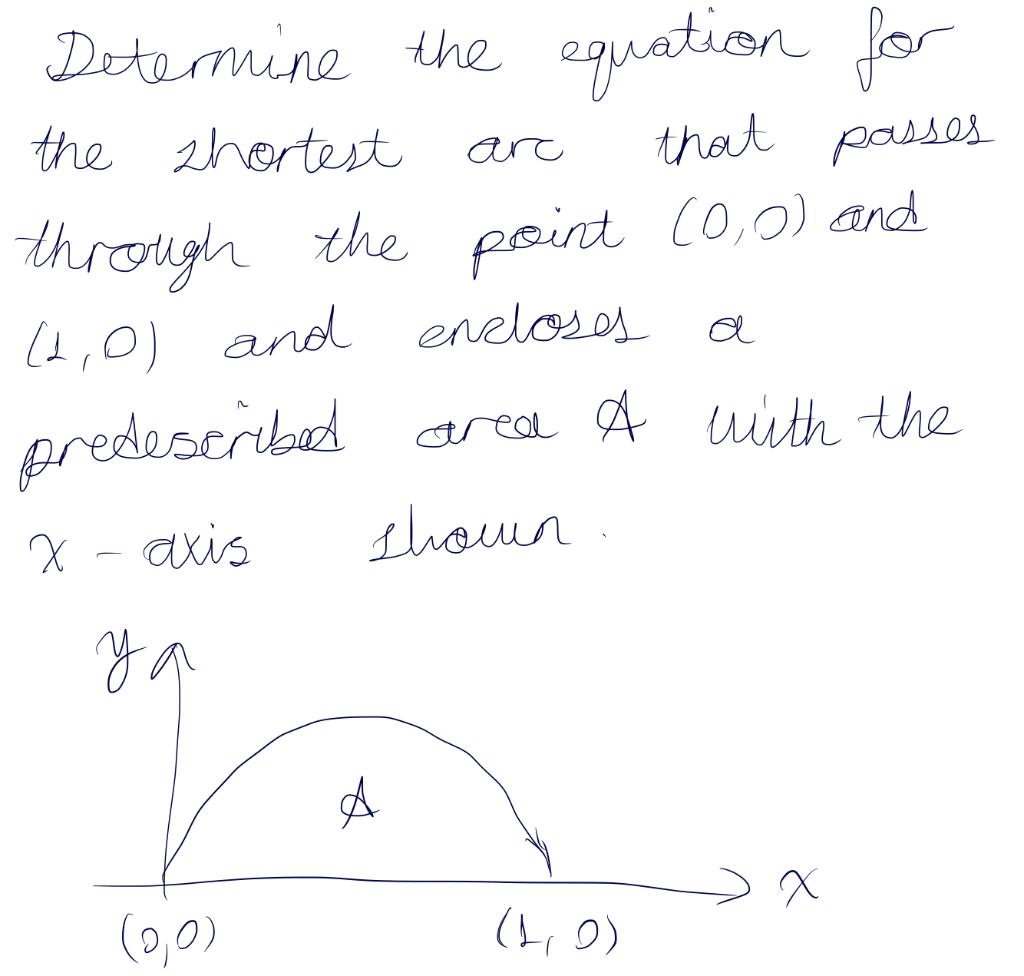 Determine the equation for
the shortest arc that passes
through the point (0,0) and
(1,0) and encloses a
predescribed area A with the
x-axis shown.
y
A
x
(0,0) (1,0)